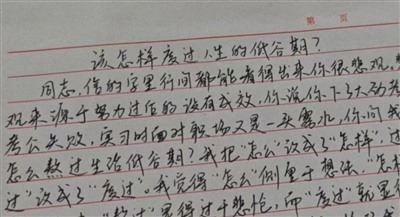 第 页
该怎样度过人生的低谷期？
同志，信的字里行间都能看得出来你很悲观，
观来源于努力过后的没有成效，你说你下了大功
考公失败，实习时面对职场又是一头雾水，你问我
怎么熬过生活低谷期？我把“怎么”改成了“怎样”，
过”改成了“度过”。我觉得“怎么”侧重于想法，“怎样
过”显得过于悲怆，而“度过”就显得